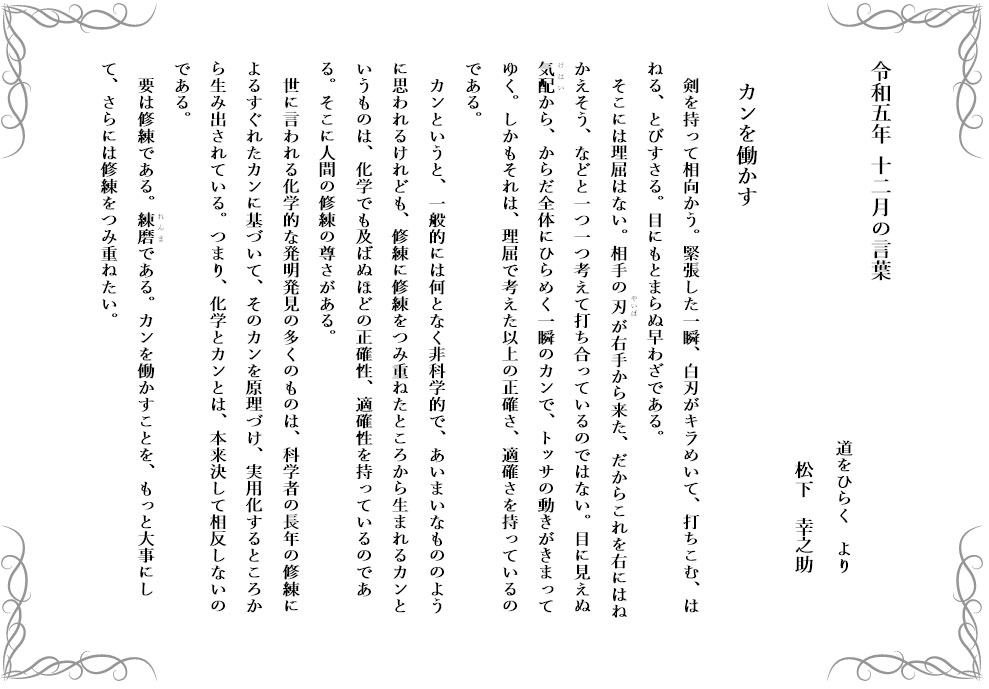 令和五年 十二月の言葉
道をひらく より
松下 幸之助
カンを働かす
剣を持って相向かう。緊張した一瞬、白刃がキラめいて、打ちこむ、は
ねる、とびすさる。目にもとまらぬ早わざである。
そこには理屈はない。相手の刃が右手から来た、だからこれを右にはね
やいば
かえそう、などと一つ一つ考えて打ち合っているのではない。目に見えぬ
気配から、からだ全体にひらめく一瞬のカンで、トッサの動きがきまって
けはい
ゆく。しかもそれは、理屈で考えた以上の正確さ、適確さを持っているの
である。
カンというと、一般的には何となく非科学的で、あいまいなもののよう
に思われるけれども、修練に修練をつみ重ねたところから生まれるカンと
いうものは、化学でも及ばぬほどの正確性、適確性を持っているのであ
る。そこに人間の修練の尊さがある。
世に言われる化学的な発明発見の多くのものは、科学者の長年の修練に
よるすぐれたカンに基づいて、そのカンを原理づけ、実用化するところか
ら生み出されている。つまり、化学とカンとは、本来決して相反しないの
である。
要は修練である。練磨である。カンを働かすことを、もっと大事にし
れんま
て、さらには修練をつみ重ねたい。